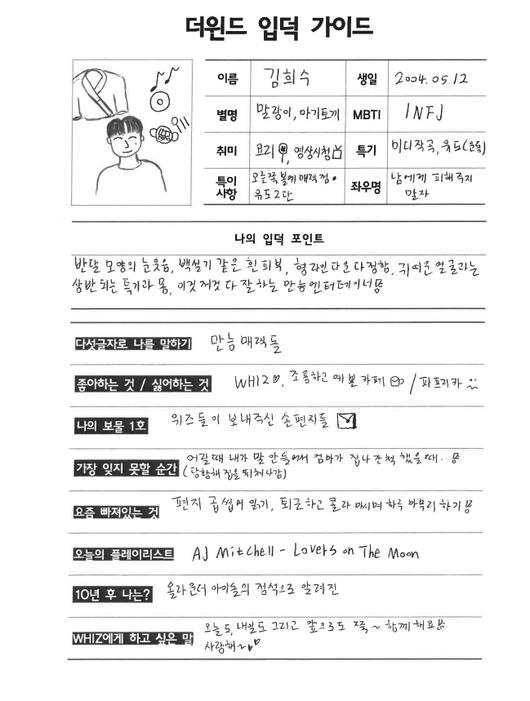 더윈드 입덕 가이드
이름 김희수 생일 2004.05.12
별명 말랑이, 아기토끼 MBTI INFJ
취미 요리, 영상시청 특기 미디작곡, 유도(호신술)
특이사항 오른쪽 볼에 매력점 유도 2단 좌우명 남에게 피해주지 말자
나의 입덕 포인트
반달 모양의 눈웃음, 백설기 같은 흰 피부, 형라인다운 다정함, 귀여운 얼굴과는
상반되는 특기와 몸, 이것저것 다 잘하는 만능엔터테이너
다섯글자로 나를 말하기 만능매력돌
좋아하는 것 / 싫어하는 것 WHIZ♡, 조용하고 예쁜 카페 / 파프리카
나의 보물 1호 위즈들이 보내주신 손편지들
가장 잊지 못할 순간 어릴때 내가 말 안들어서 엄마가 집나간 척 했을 때..
(당황해 집을 뛰쳐나감)
요즘 빠져있는 것 편지 곱씹어 읽기, 퇴근하고 콜라 마시며 하루 마무리하기
오늘의 플레이리스트 AJ Mitchell - Lovers on The Moon
10년 후 나는? 올라운더 아이돌의 정석으로 알려진
WHIZ에게 하고 싶은 말 오늘도, 내일도 그리고 앞으로도 쭉~ 함께해요
사랑해~♥♡